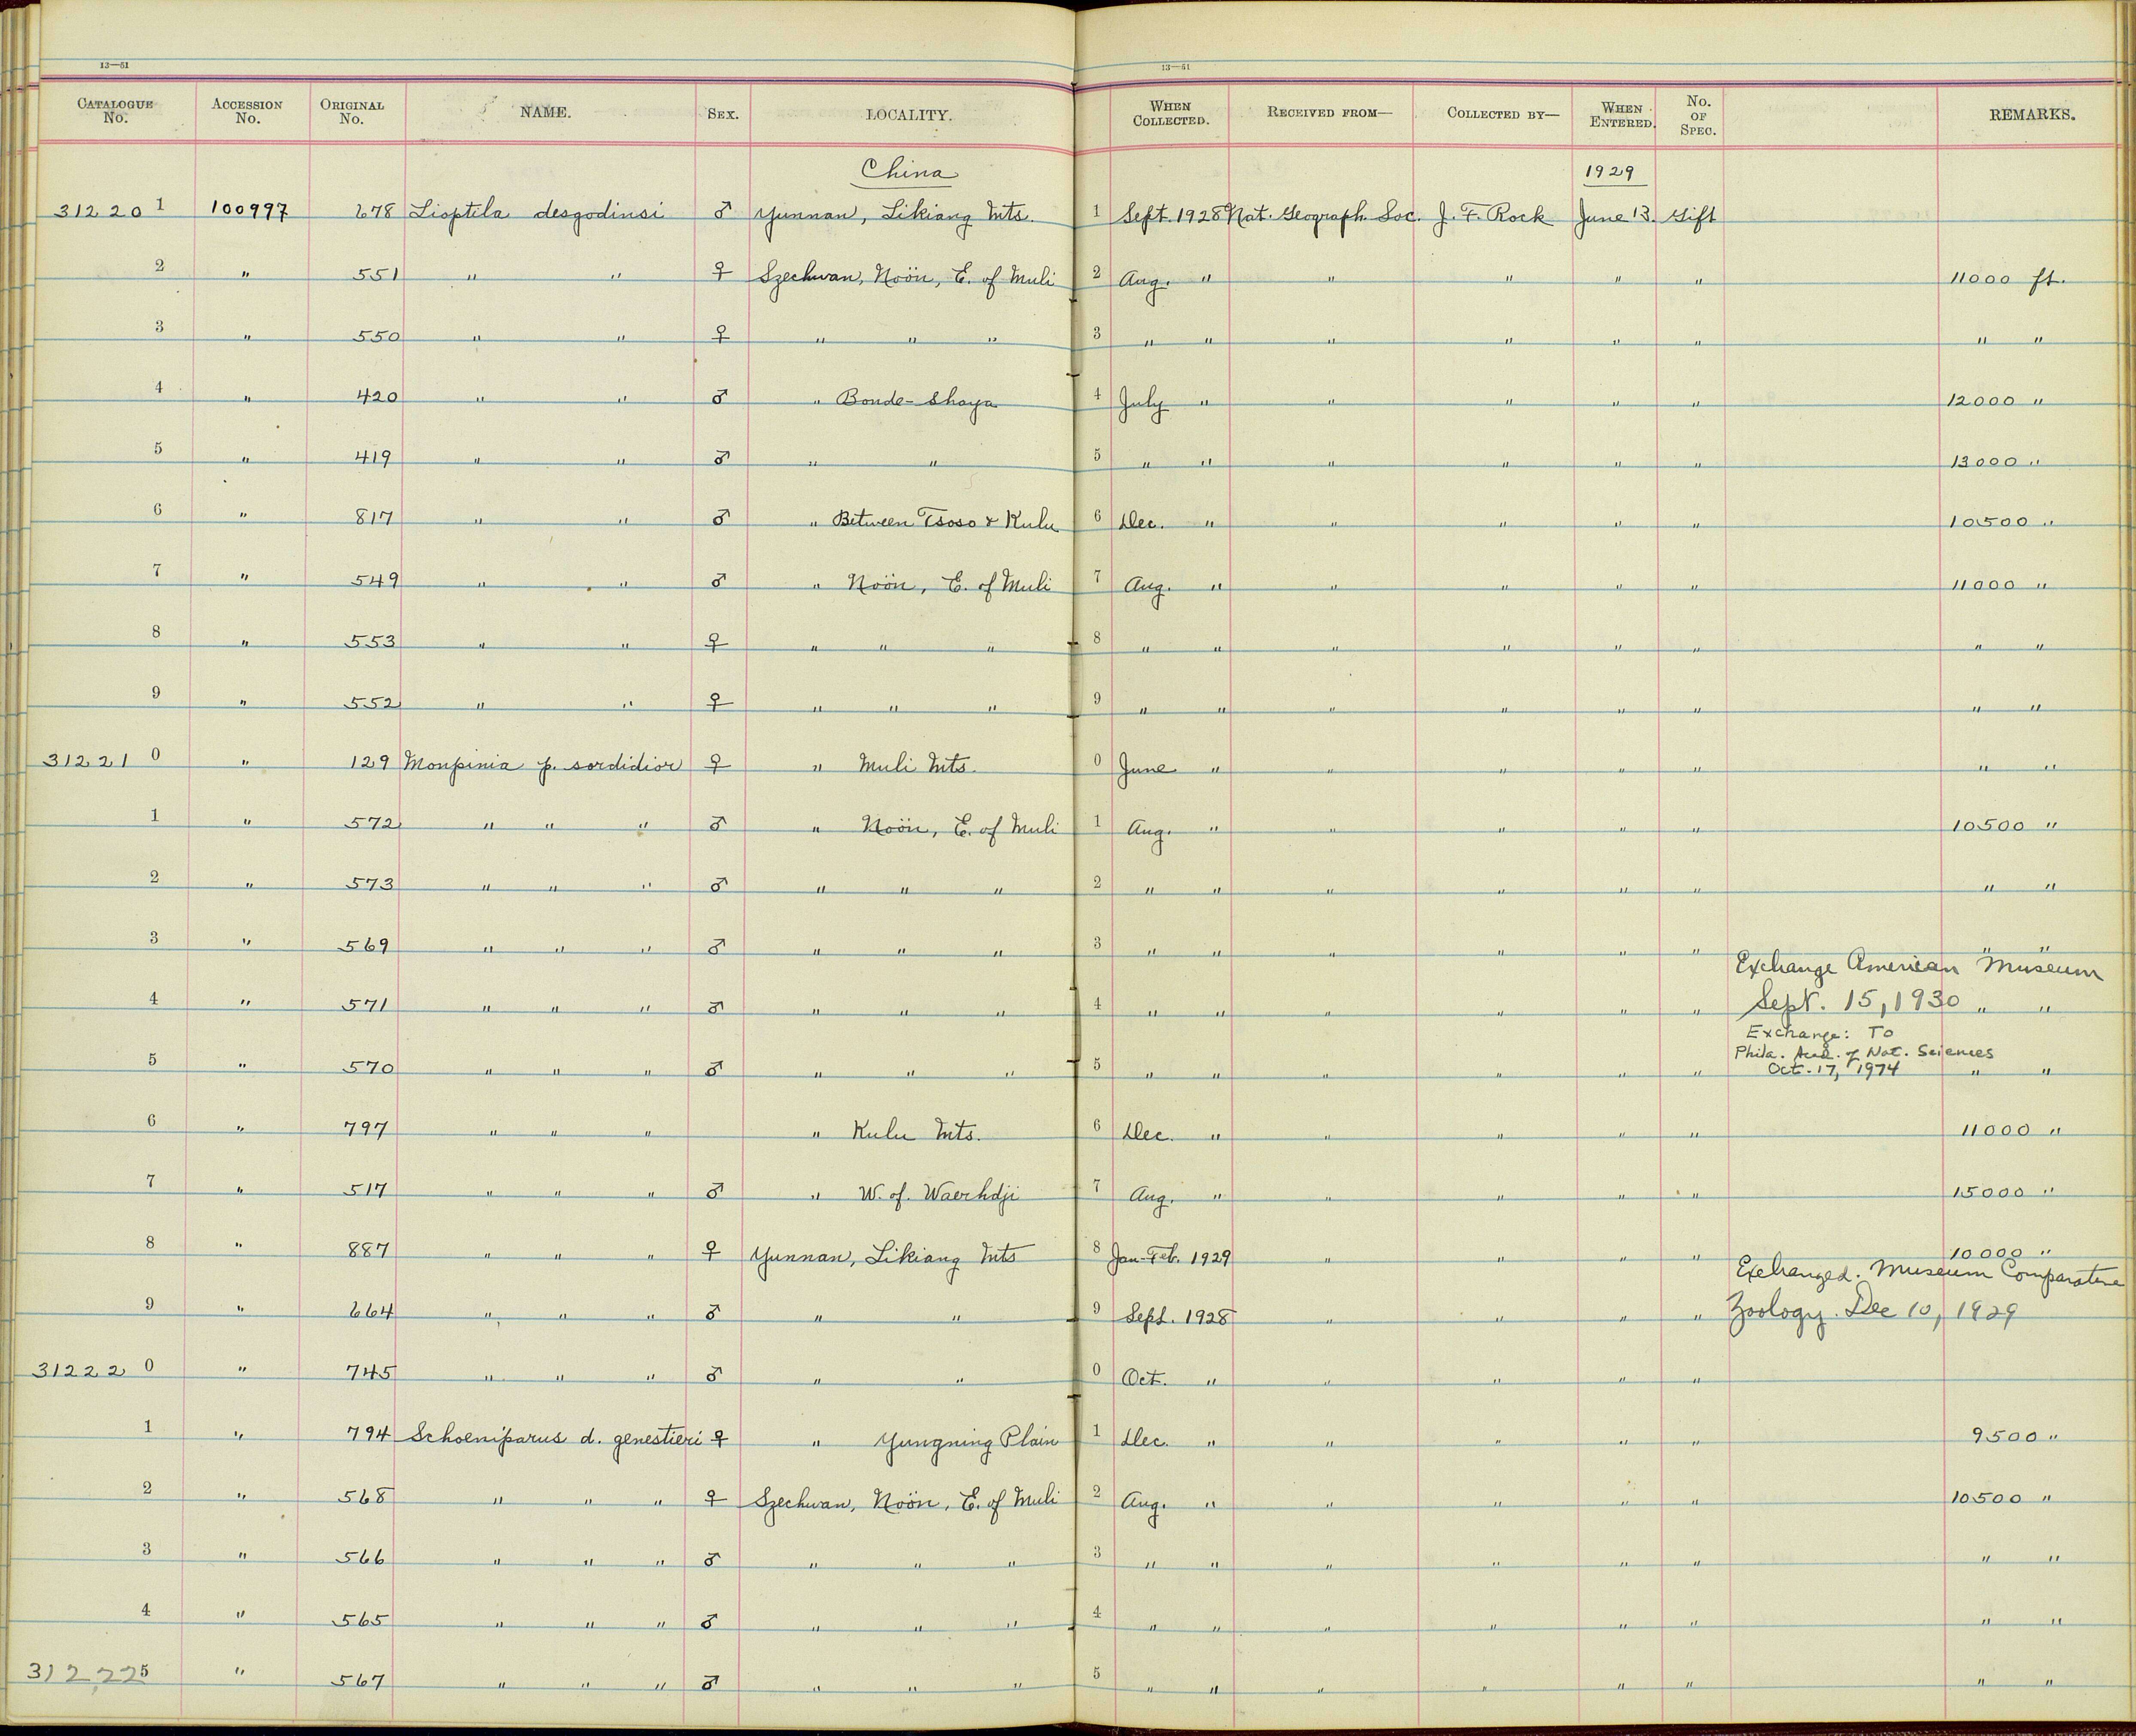 13—51 13—51
CATALOGUE No. ACCESSION No. ORIGINAL No. NAME. SEX. LOCALITY. WHEN COLLECTED. RECEIVED FROM— COLLECTED BY— WHEN ENTERED. No. OF SPEC. REMARKS.
China 1929
31220 1 100997 678 Lioptila desgodinsi ♂ Yunnan, Likiang Mts. 1 Sept. 1928 Nat. Geograph. Soc. J. F. Rock June 13. Gift
2 " 551 " " ♀ Szechwan, Noön, E. of Muli 2 Aug. " " " " " 11000 ft.
3 " 550 " " ♀ " " " 3 " " " " " " " "
4 " 420 " " ♂ " Bonde-Shaya 4 July " " " " " 12000 "
5 " 419 " " ♂ " " 5 " " " " " " 13000 "
6 " 817 " " ♂ " Between Tsoso & Kulu 6 Dec. " " " " " 10500 "
7 " 549 " " ♂ " Noön, E. of Muli 7 Aug. " " " " " 11000 "
8 " 553 " " ♀ " " " 8 " " " " " " " "
9 " 552 " " ♀ " " " 9 " " " " " " " "
31221 0 " 129 Moupinia p. sordidior ♀ " Muli Mts. 0 June " " " " " " "
1 " 572 " " " ♂ " Noön, E. of Muli 1 Aug. " " " " " 10500 "
2 " 573 " " " ♂ " " " 2 " " " " " " " "
3 " 569 " " " ♂ " " " 3 " " " " " " " "
Exchange American Museum
4 " 571 " " " ♂ " " " 4 " " " " " " Sept. 15, 1930 " "
Exchange: To
Phila. Acad. of Nat. Sciences
5 " 570 " " " ♂ " " " 5 " " " " " " Oct. 17, 1974 " "
6 " 797 " " " " Kulu Mts. 6 Dec. " " " " " 11000 "
7 " 517 " " " ♂ " W. of. Waerhdji 7 Aug. " " " " " 15000 "
8 " 887 " " " ♀ Yunnan, Likiang Mts 8 Jan-Feb. 1929 " " " " 10000 "
Exchanged. Museum Comparative
9 " 664 " " " ♂ " " 9 Sept. 1928 " " " " Zoology. Dec 10, 1929
31222 0 " 745 " " " ♂ " " 0 Oct. " " " " "
1 " 794 Schoeniparus d. genestieri ♀ " Yungning Plain 1 Dec. " " " " " 9500 "
2 " 568 " " " ♀ Szechwan, Noön, E. of Muli 2 Aug. " " " " " 10500 "
3 " 566 " " " ♂ " " " 3 " " " " " " " "
4 " 565 " " " ♂ " " " 4 " " " " " " " "
312,225 " 567 " " " ♂ " " " 5 " " " " " " " "